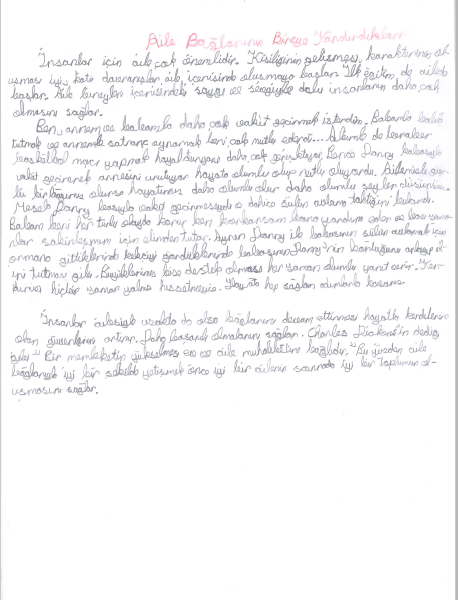 Aile Bağlarının Bireye Kandırdıkları
İnsanlar için aile çok önemlidir. Kişiliğinin gelişmesi, karakterinin ol-
uşması iyi, kötü davranışları aile içerisinde oluşmaya başlar. İlk eğitim de ailede
başlar. Aile bireyleri içerisindeki saygı ve sevgiyle dolu insanların daha çok
olmasını sağlar.
Ben, annem ve babamla daha çok vakit geçirmek isterdim. Babamla balık
tutmak ve annemle satranç oynamak beni çok mutlu ederdi... Ailemle beraber
basketbol maçı yapmak hayal dünyamı daha çok genişletiyor. Bence Danny babasıyla
vakit geçirerek annesini unutuyor hayata olumlu olup mutlu oluyordu. Ailemizle
bir bağımız olursa hayatımız daha olumlu olur daha olumlu şeyler düşünürüz.
Mesela Danny babasıyla vakit geçirmeseydi o dahice sülün avlama taktiğini bulamazdı.
Babam beni her türlü olayda korur ben korkarsam bana yardım eder ve bazı zama-
nlar sakinleşmem için elimden tutar. Aynen Danny ile babasının sülün avlamak için
ormana gittiklerinde bekçiyi gördüklerinde babasının Danny'nin korktuğunu anlayıp el-
ini tutması gibi. Büyüklerimiz bize destek olması her zaman olumlu yanıt verir. Ken-
dimizi hiçbir zaman yalnız hissetmeyiz. Hayata hep sağlam adımlarla basarız.
İnsanlar ailesiyle uzakta da olsa bağlarını devam ettirmesi hayatta kendilerine
olan güvenlerini artırır. Daha başarılı olmalarını sağlar. Charles Dickens'in dediği
gibi "Bir memleketin yükselmesi ev ve aile muhabbetine bağlıdır." Bu yüzden aile
bağlarıyla iyi bir şekilde yetişmek önce iyi bir ailenin sonrada iyi bir toplumun ol-
uşmasını sağlar.